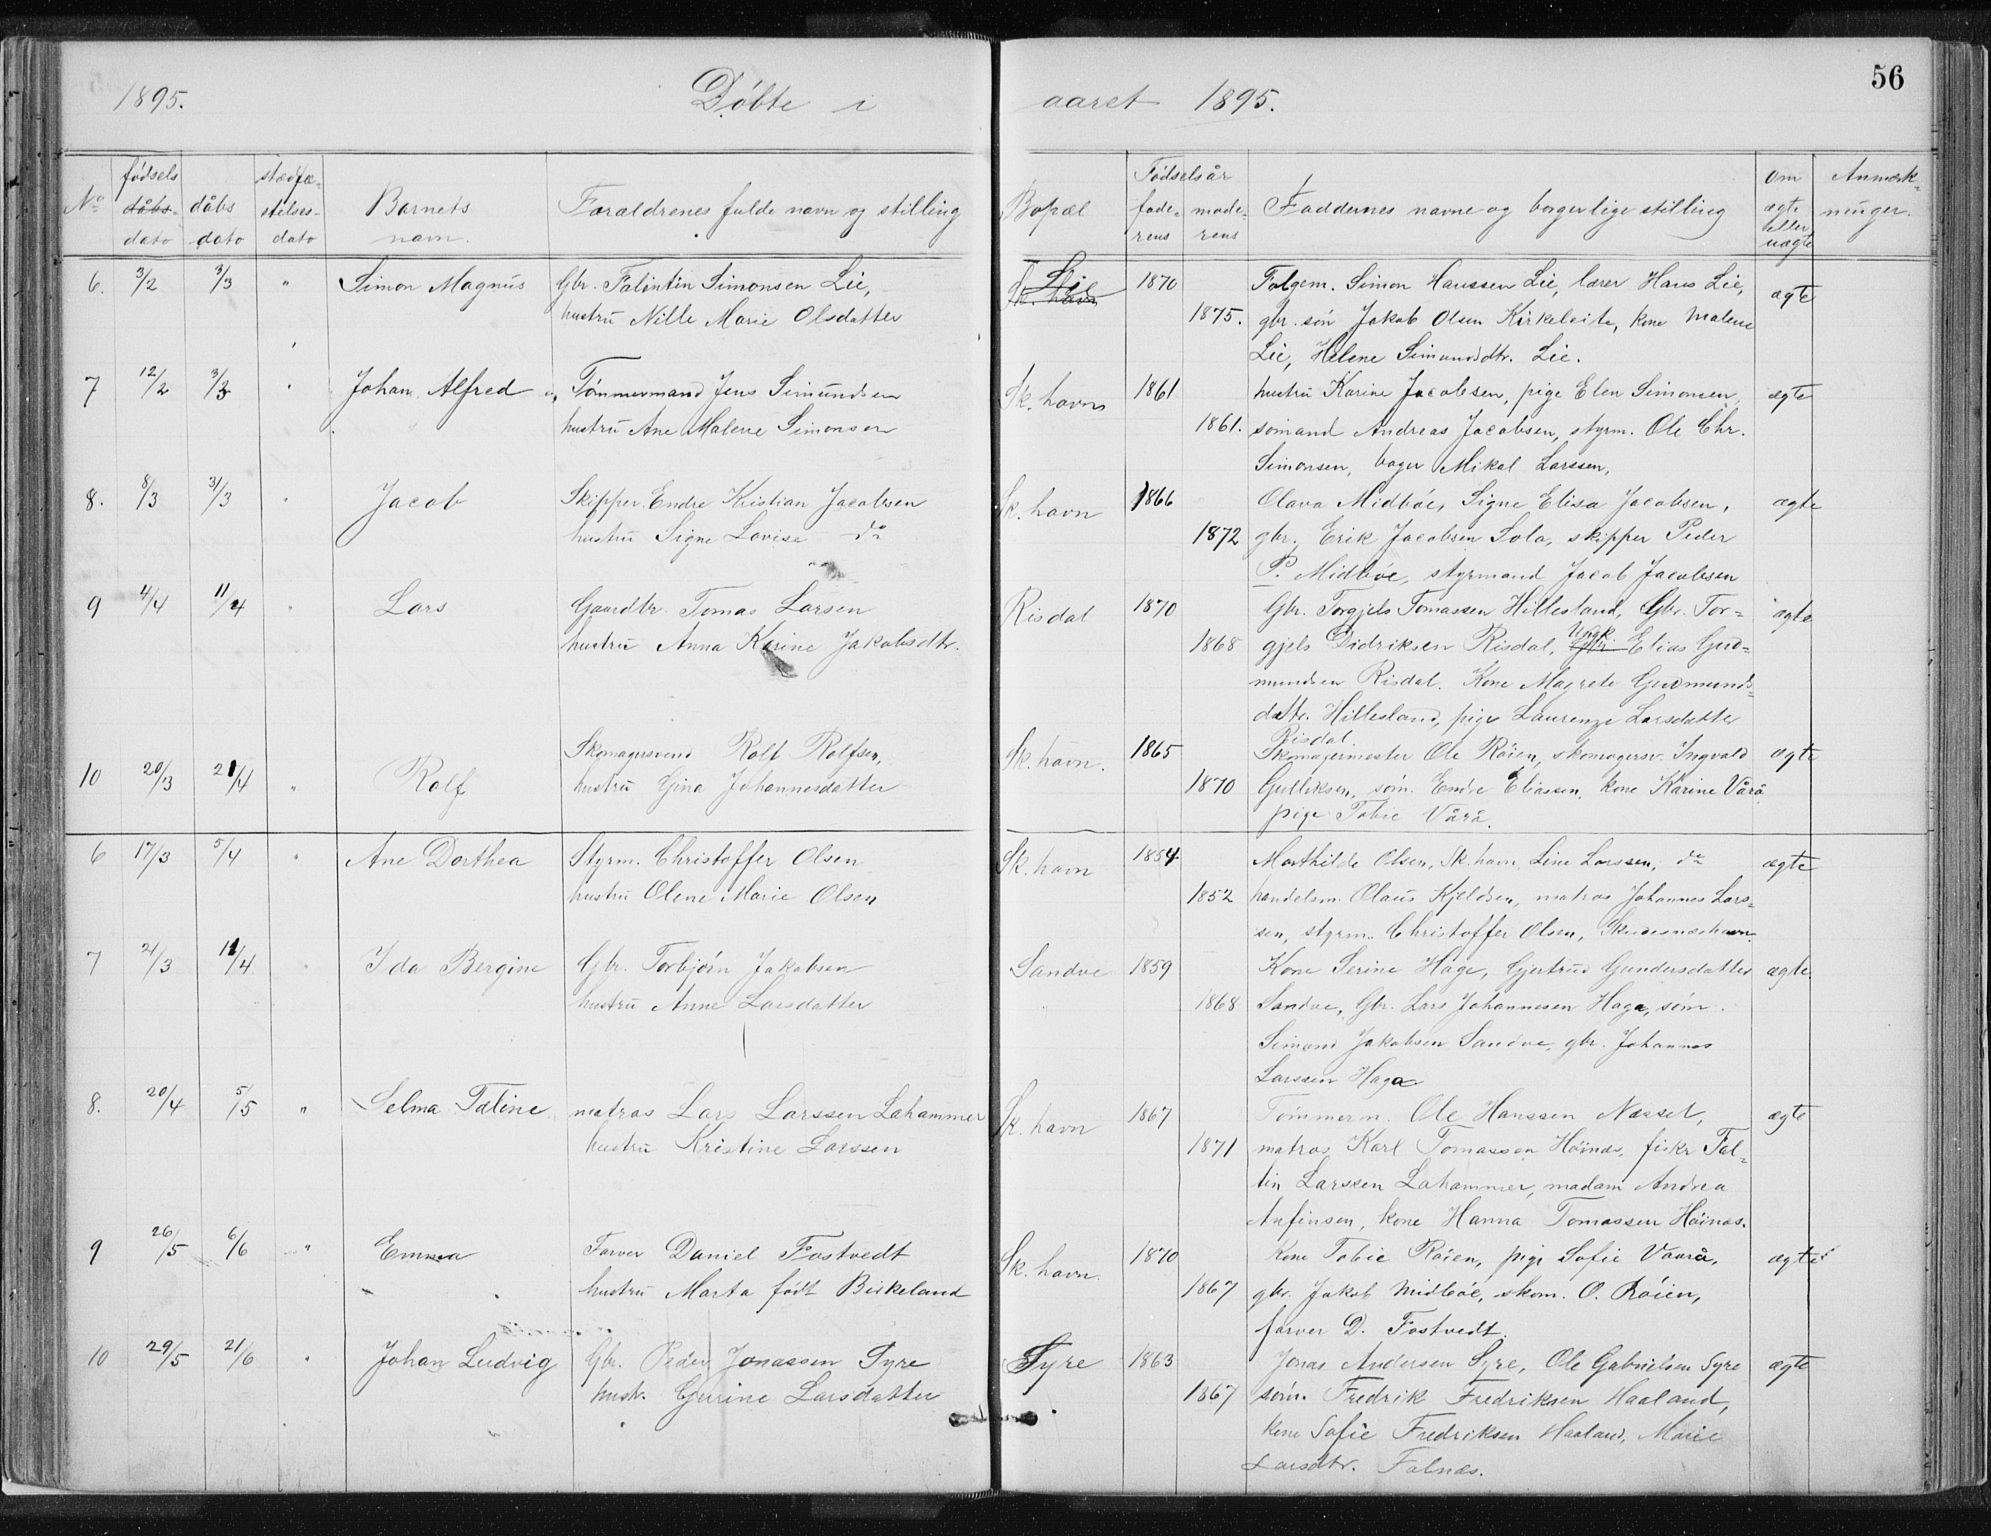 56
1895. Döbte i aaret 1895.
No fødsels dåbs- dato dåbs dato stadfæ- stelses- dato Barnets navn. Forældrenes fulde navn og stilling Bopæl Fødselsår fade- rens mode- rens Faddernes navne og borgerlige stilling Om ægte eller uægte Anmærk- ninger.
6. 3/2 3/3 " Simon Magnus Gbr. Falintin Simonsen Lie, Lie Sk. havn 1870 Folgem. Simon Hanssen Lie, lærer Hans Lie, ægte
hustru Nille Marie Olsdatter 1875. gbr. søn Jakob Olsen Kirkeleite, kone Malene
Lie, Helene Simunsdtr. Lie.
7 12/2 3/3 " Johan Alfred Tömmermand Jens Simundsen Sk. havn 1861 hustru Karine Jacobsen, pige Elen Simonsen, ægte
hustru Ane Malene Simonsen 1861. sömand Andreas Jacobsen, styrm. Ole Chr.
Simonsen, bager Mikal Larssen,
8. 8/3 31/3 " Jacob Skipper Endre Kristian Jacobsen Sk. havn 1866 Olava Midböe, Signe Elisa Jacobsen, ægte
hustru Signe Lovise do 1872 gbr. Erik Jacobsen Sola, skipper Peder
P. Midböe, styrmand Jacob Jacobsen
9 4/4 11/4 " Lars Gaardbr. Tomas Larsen Risdal 1870 Gbr. Torgjels Tomassen Hillesland, Gbr. Tor- ægte
hustru Anna Karine Jakobsdtr. 1868 gjels Didriksen Risdal, Gbr. Ungk. Elias Gud-
mundsen Risdal. Kone Magrete Gudmunds-
datr. Hillesland, pige Laurenze Larsdatter
Risdal
10 20/3 21/4 " Rolf Skomagersvend Rolf Rolfsen, Sk. havn. 1865 Skomagermester Ole Röien, skomagersv. Ingvald ægte
hustru Gina Johannesdatter 1870 Gulliksen, söm. Endre Eliassen, kone Karine Vårå
pige Tobie Vårå.
6 17/3 5/4 " Ane Dorthea Styrm. Christoffer Olsen Sk. havn 1854. Marthilde Olsen, Sk. havn, Line Larssen, do ægte
hustru Olene Marie Olsen 1852 handelsm. Olaus Kjeldsen, matros Johannes Lars-
sen, styrm. Christoffer Olsen, Skudesnæshavn.
7 21/3 11/4 " Ida Bergine Gbr. Torbjörn Jakobsen Sandve 1859 Kone Serine Hage, Gjertrud Gundersdatter ægte.
hustru Anne Larsdatter 1868 Sandve, Gbr. Lars Johannesen Haga, söm.
Simand Jakobsen Sandve, gbr. Johannes
Larssen Haga.
8. 20/4 5/5 " Selma Taline matros Lars Larssen Lahammer Sk. havn 1867 Tömmerm. Ole Hanssen Næsset, ægte
hustru Kristine Larssen 1871 matros Karl Tomassen Höinæs, fisker Fal-
tin Larssen Lahammer, madam Andrea
Anfinsen, kone Hanna Tomassen Höinæs.
9 26/5 6/6 " Emma Farver Daniel Fostvedt Sk. havn. 1870 Kone Tobie Röien, pige Sofie Vaarå, ægte
hustru Marta født Birkeland 1867 gbr. Jakob Midböe, skom. O. Röien,
farver D. Fostvedt.
10 29/5 21/6 " Johan Ludvig Gbr. Peder Jonassen Syre Syre 1863 Jonas Andersen Syre, Ole Gabrielsen Syre ægte
hustr. Gurine Larsdatter 1867 söm. Fredrik Fredriksen Haaland,
kone Sofie Fredriksen Haaland, Marie
Larsdtr. Falnæs.